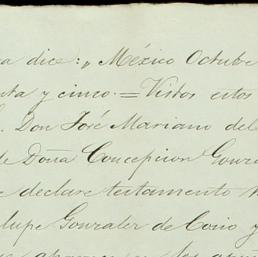 a dice: „ México Octubre
nta y cinco. = Vistos estos
Don José Mariano del
de Doña Concepcion Gonza
e declare testamento
lupe Gonzalez de Cosio y